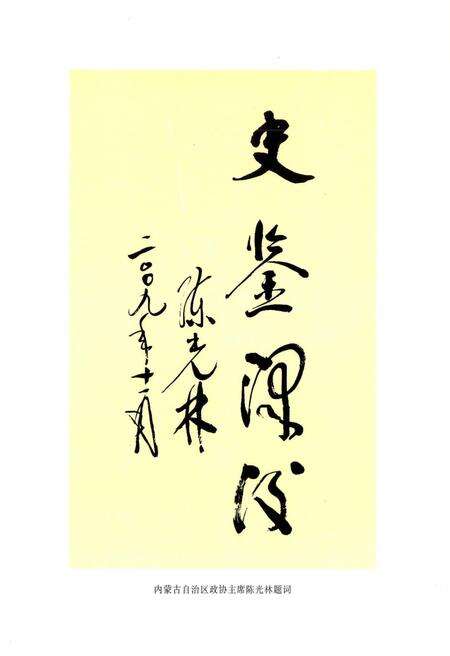 史鉴泽後
陈光林
二〇〇九年十一月
内蒙古自治区政协主席陈光林题词